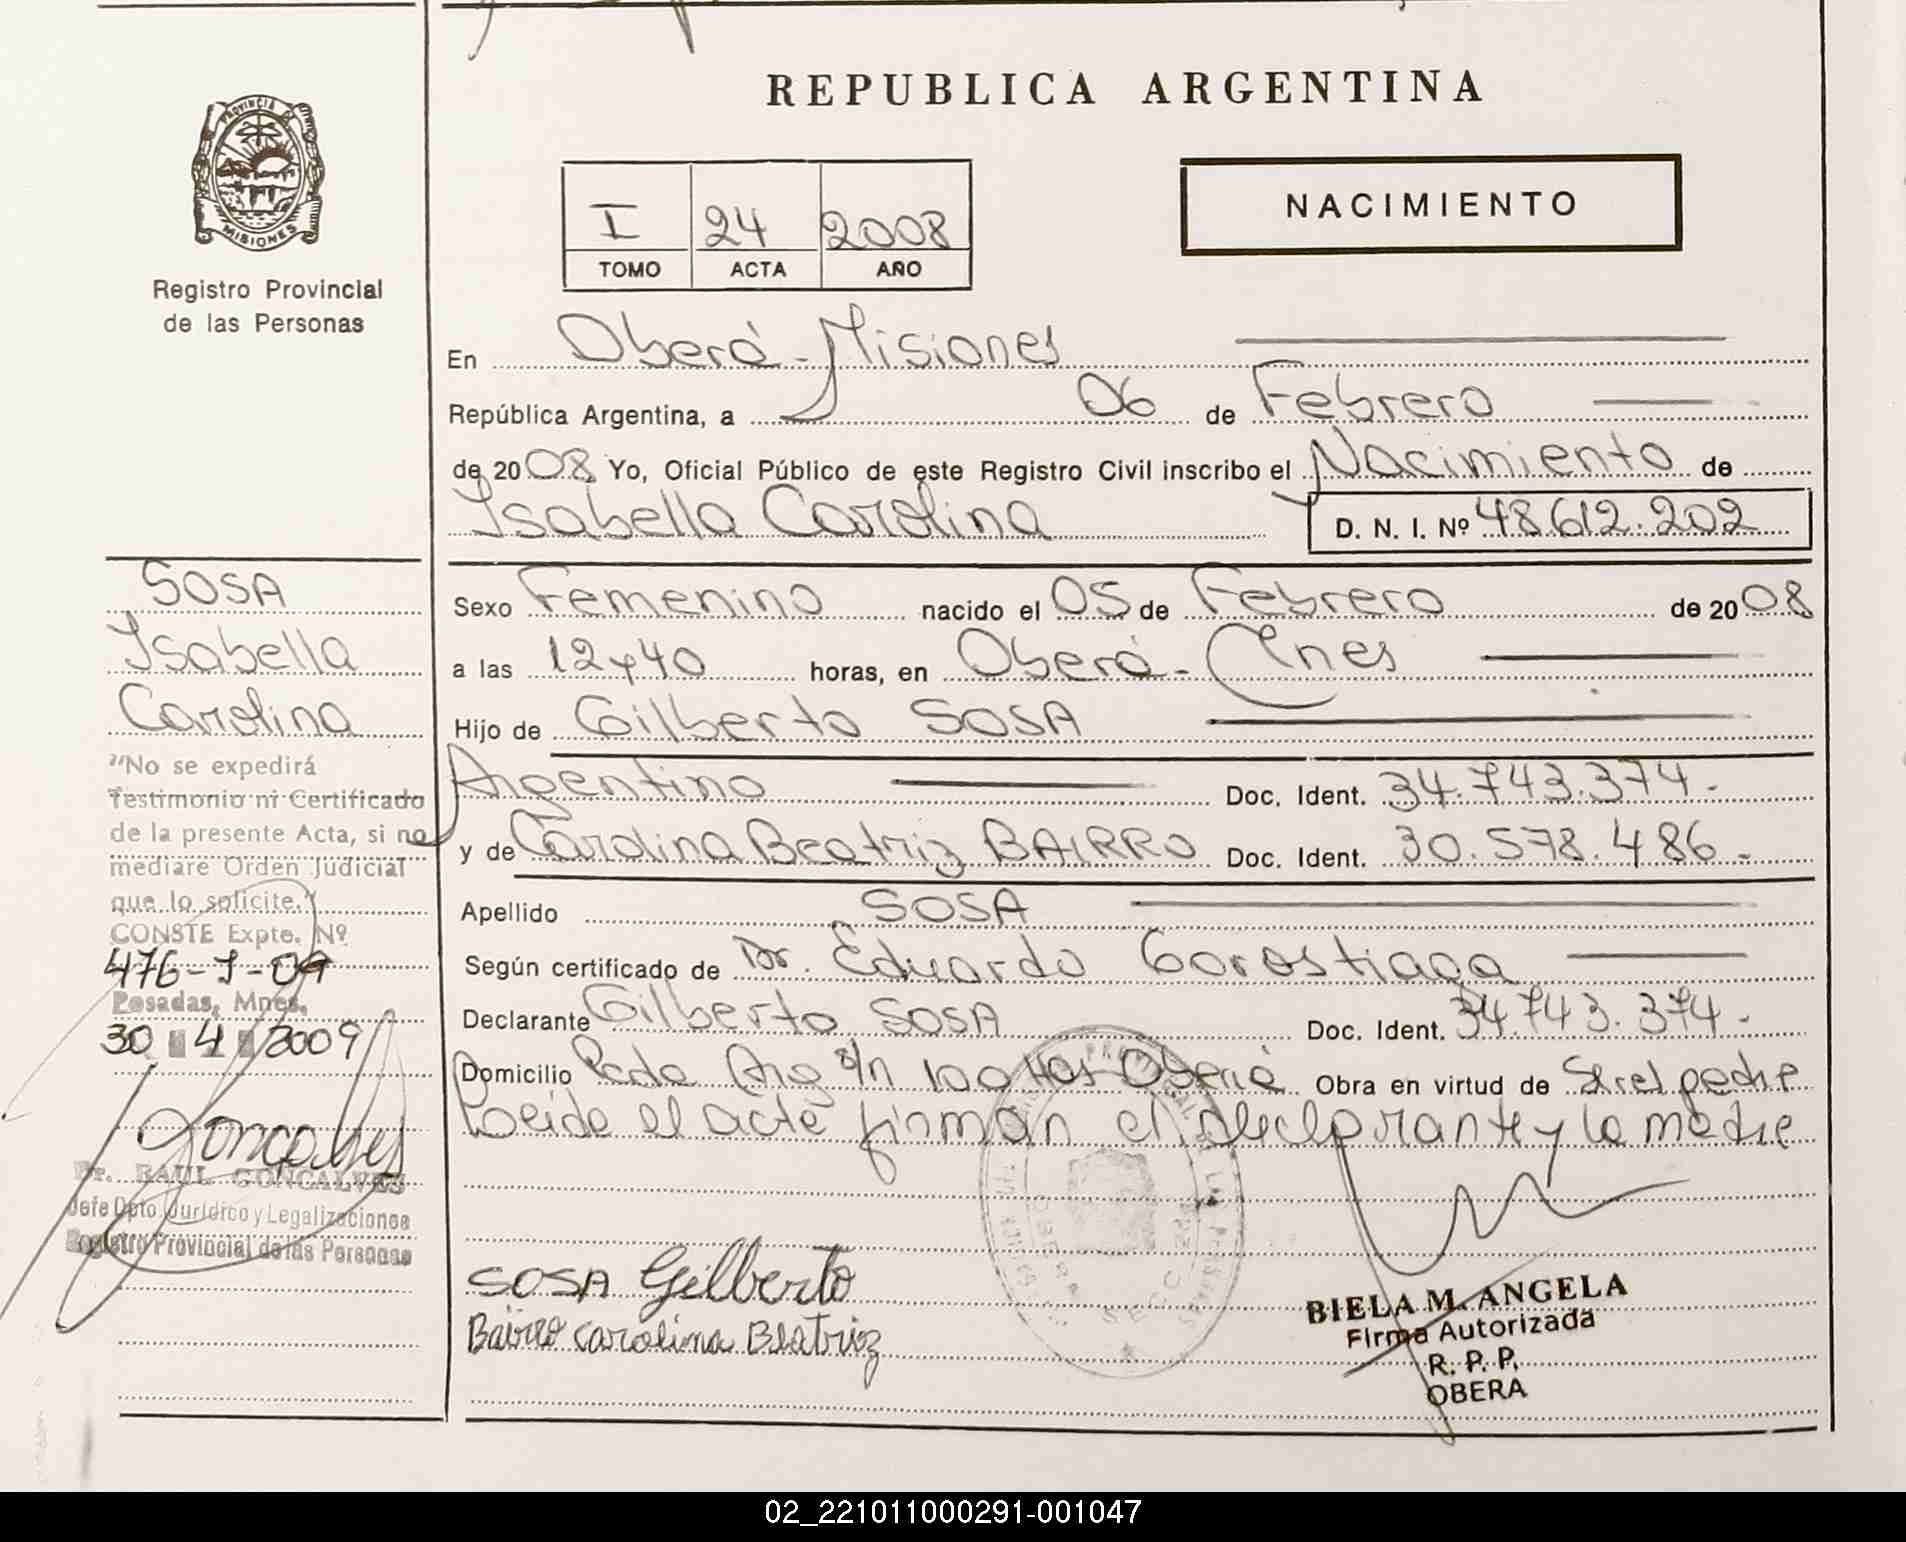 REPUBLICA ARGENTINA
PROVINCIA DE
MISIONES
Registro Provincial
de las Personas
I 24 2008
TOMO ACTA AÑO
NACIMIENTO
En Oberá - Misiones
República Argentina, a 06 de Febrero
de 2008 Yo, Oficial Público de este Registro Civil inscribo el Nacimiento de
Isabella Carolina D. N. I. Nº 48.612.202
Sexo Femenino nacido el 05 de Febrero de 2008
a las 12 y 40 horas, en Oberá - Mnes
Hijo de Gilberto SOSA
Argentino Doc. Ident. 34.743.374.-
y de Carolina Beatriz BAIRRO Doc. Ident. 30.578.486.-
Apellido SOSA
Según certificado de Dr. Eduardo Gorostiaga
Declarante Gilberto SOSA Doc. Ident. 34.743.374.-
Domicilio Rca Arg s/n 100 Has Oberá Obra en virtud de Ser el padre
Leida el acta firman el declarante y la madre
SOSA
Isabella
Carolina
"No se expedirá
Testimonio ni Certificado
de la presente Acta, si no
mediare Orden Judicial
que lo solicite."
CONSTE Expte. Nº
476-J-09
Posadas, Mnes.
30 4 2009
Goncalves
Dr. RAUL GONCALVES
Jefe Dpto. Jurídico y Legalizaciones
Registro Provincial de las Personas
SOSA Gilberto
Bairro Carolina Beatriz
BIELA M. ANGELA
Firma Autorizada
R. P. P.
OBERA
02_221011000291-001047